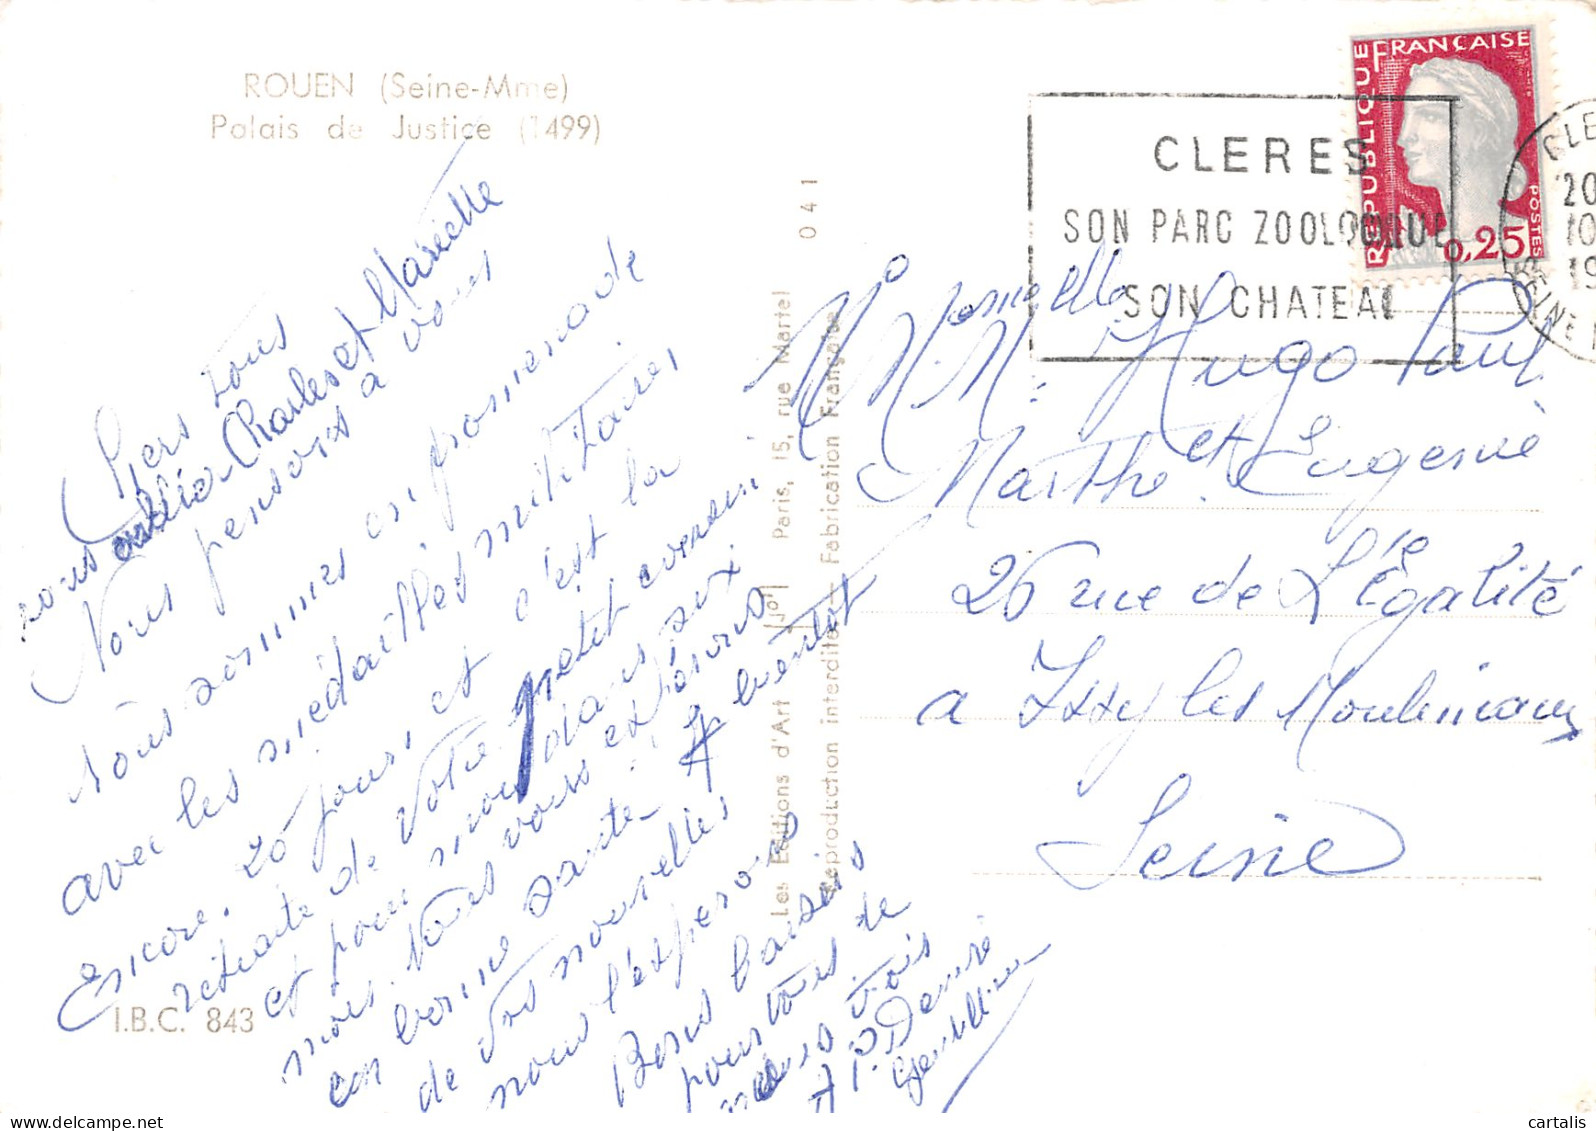 ROUEN (Seine-Mme)
Palais de Justice (1499)
Chers tous
nous oublions Charles et Marielle
Nous pensons à vous
Nous sommes en promenade
avec les médaillés militaires
Encore 20 jours et c'est la
retraite de votre petit
et pour nous dans
mois. Nous vous
en bonne santé. A bientôt
de vos nouvelles
nous l'espérons
Bons baisers
pour tous de
nous trois
I.B.C. 843
Les Editions d'Art Paris, 15, rue Martel 041
Reproduction interdite - Fabrication Française
CLERES
SON PARC ZOOLOGIQUE
SON CHATEAU
REPUBLIQUE FRANÇAISE
POSTES
0,25
Hugo Paul
Marthe et Eugenie
26 rue de L'Egalité
a Issy les Moulineaux
Seine
cartalis
delcampe.net